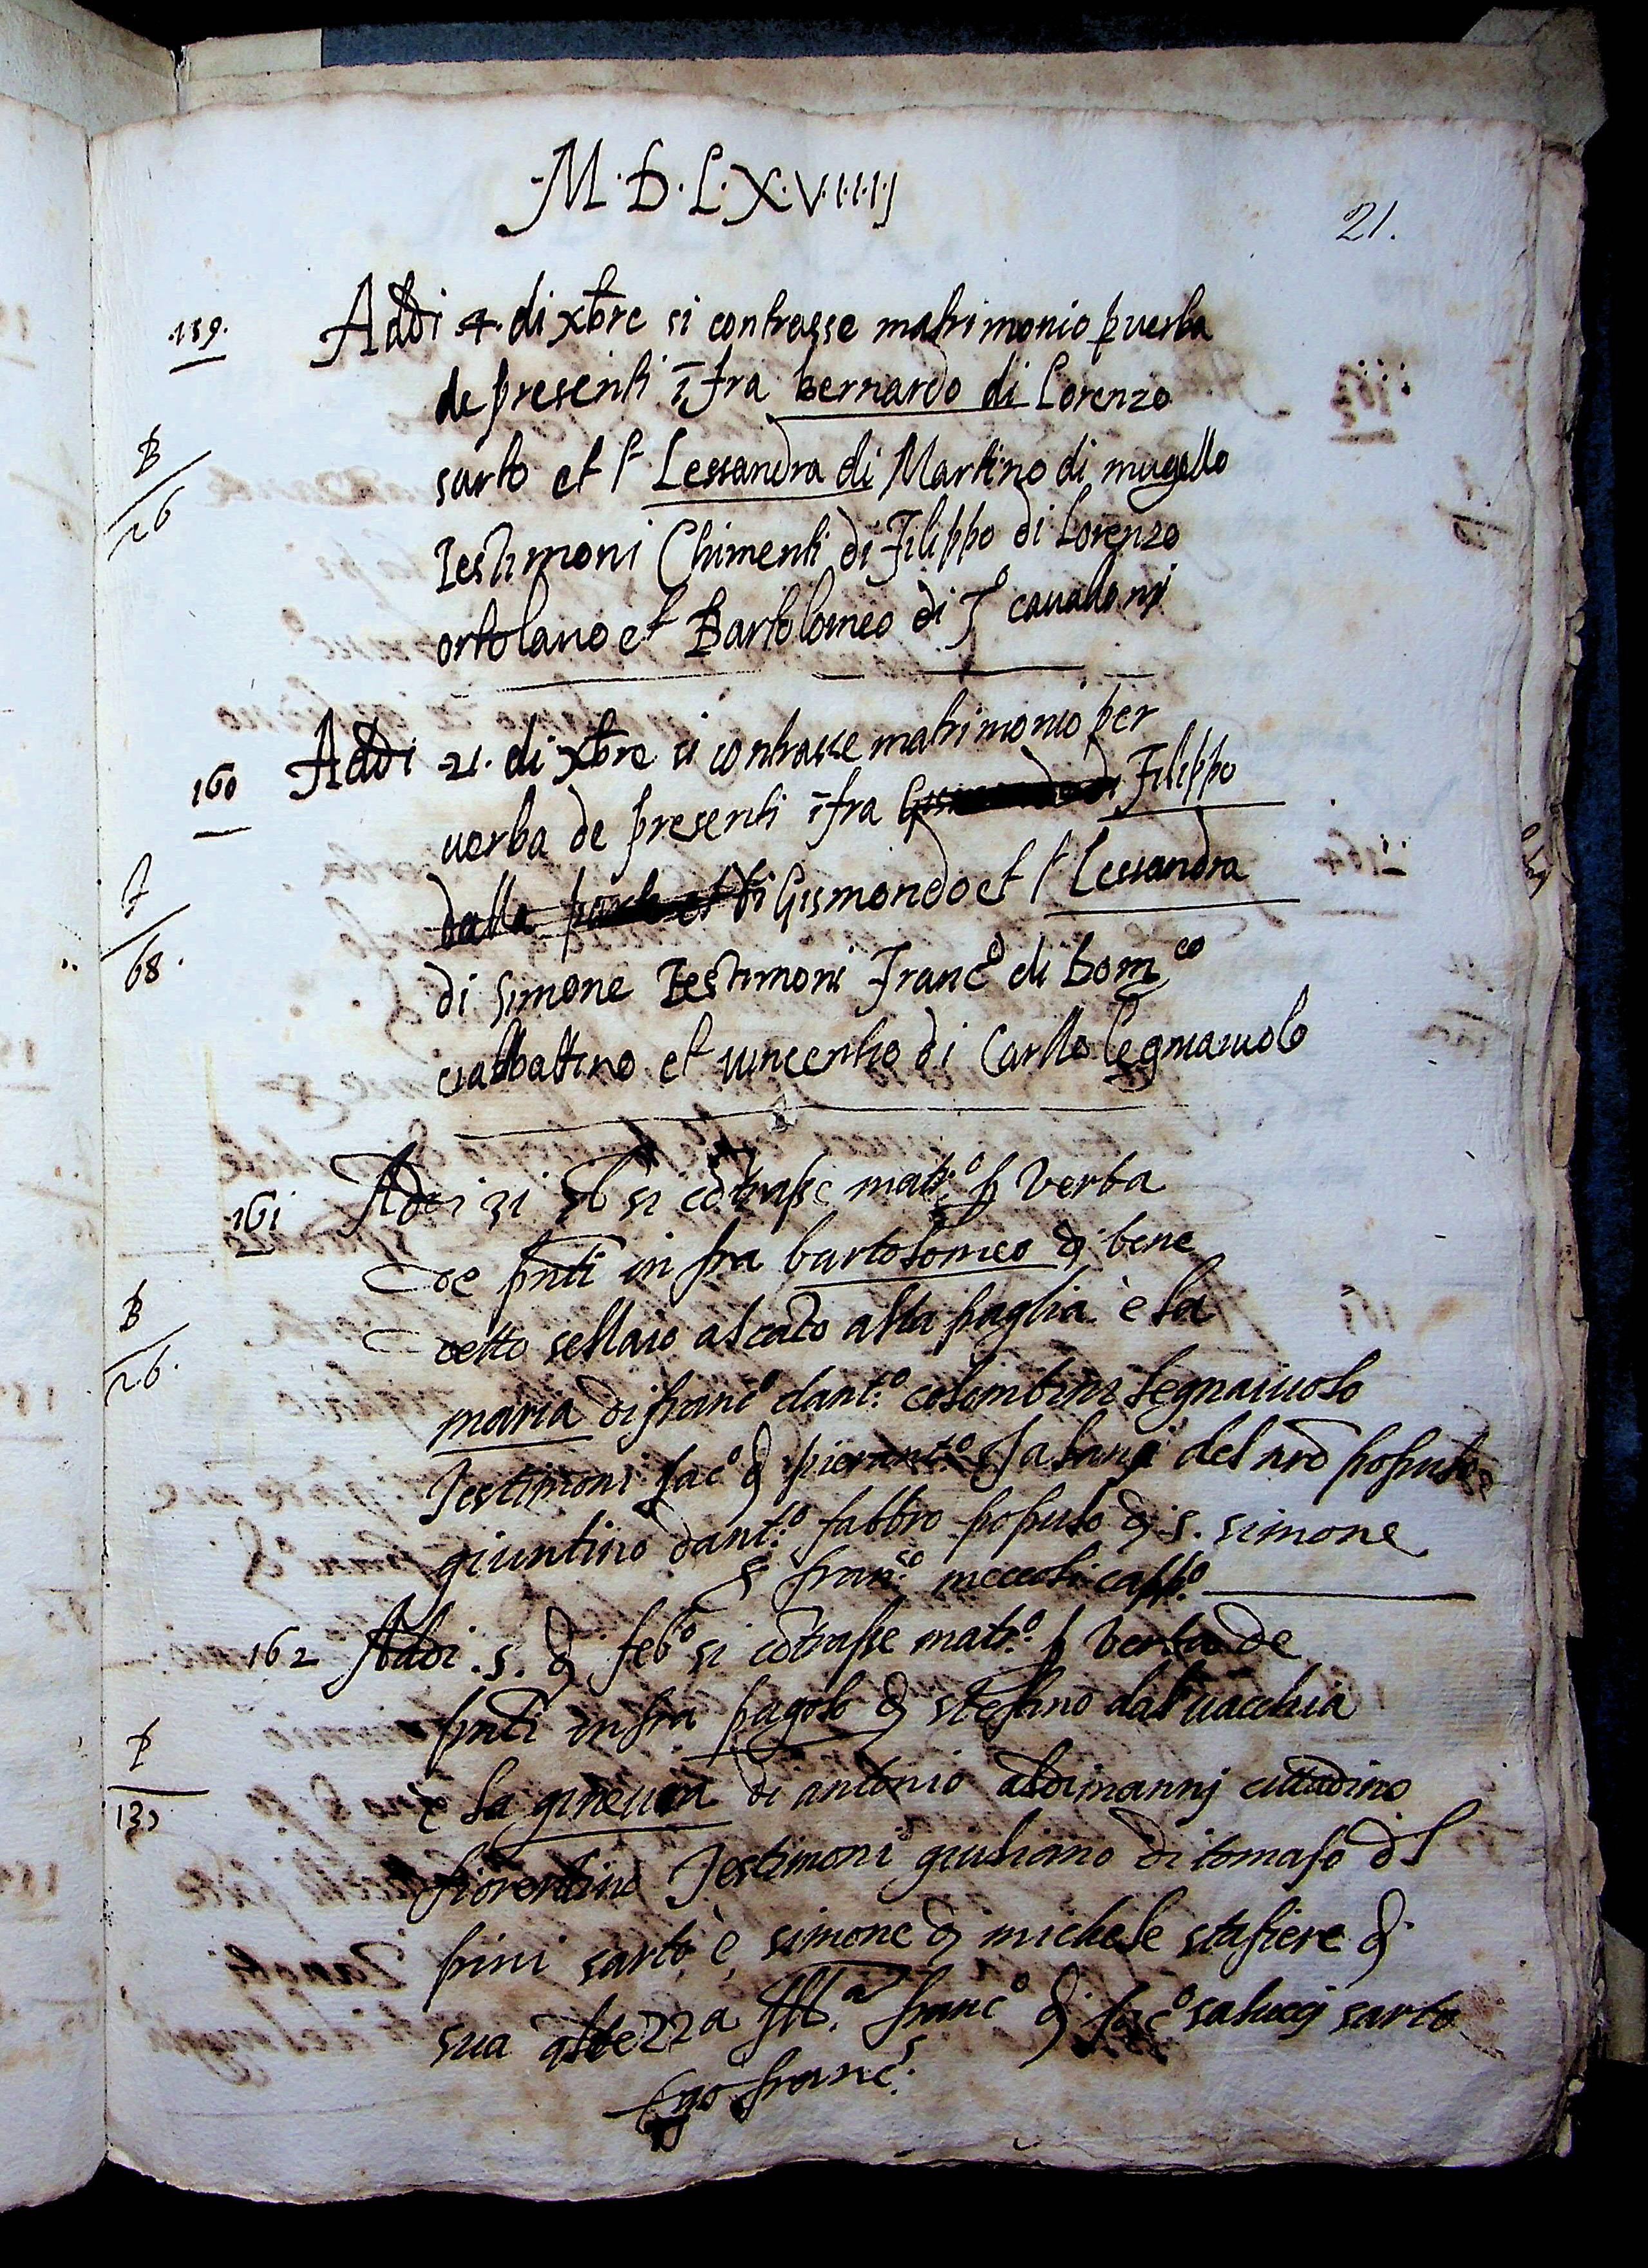 M·D·L·X·V·I·I·I·J
21.
159.
Addi 4. di xbre si contrasse matrimonio p uerba
de presenti ifra Bernardo di Lorenzo
B
26
sarto et l'a Lessandra di Martino di mugello
Testimoni Chimenti di Filippo di Lorenzo
ortolano et Bartolomeo di
160
Addi 21. di xbre si contrasse matrimonio per
uerba de presenti ifra Filippo
F
68.
dalla di Gismondo et l'a Lessandra
di Simone Testimoni Franco di Domco
ciabbattino et vincentio di Carllo legnaiuolo
161
Addi 31 si cotrasse matro p verba
de pnti in fra bartolomeo di bene
B
26.
detto sellaio al cato alla paglia e la
maria di franco danto colombini legnaiuolo
Testimoni Jaco di pieranto del nro populo
giuntino danto fabbro populo di s. simone
franco meccoli capp.o
162
Addi .5. di febo si cotrasse matro p verba de
pnti infra pagolo di stefano dal vacchia
P
135
e la gineura di antonio aldimannj cittadino
fiorentino Testimoni giuliano di tomaso del
pini sarto e simone di michele stafiere di
sua altezza Ill.a franco di Jaco salucij sarto
Ego franc.s